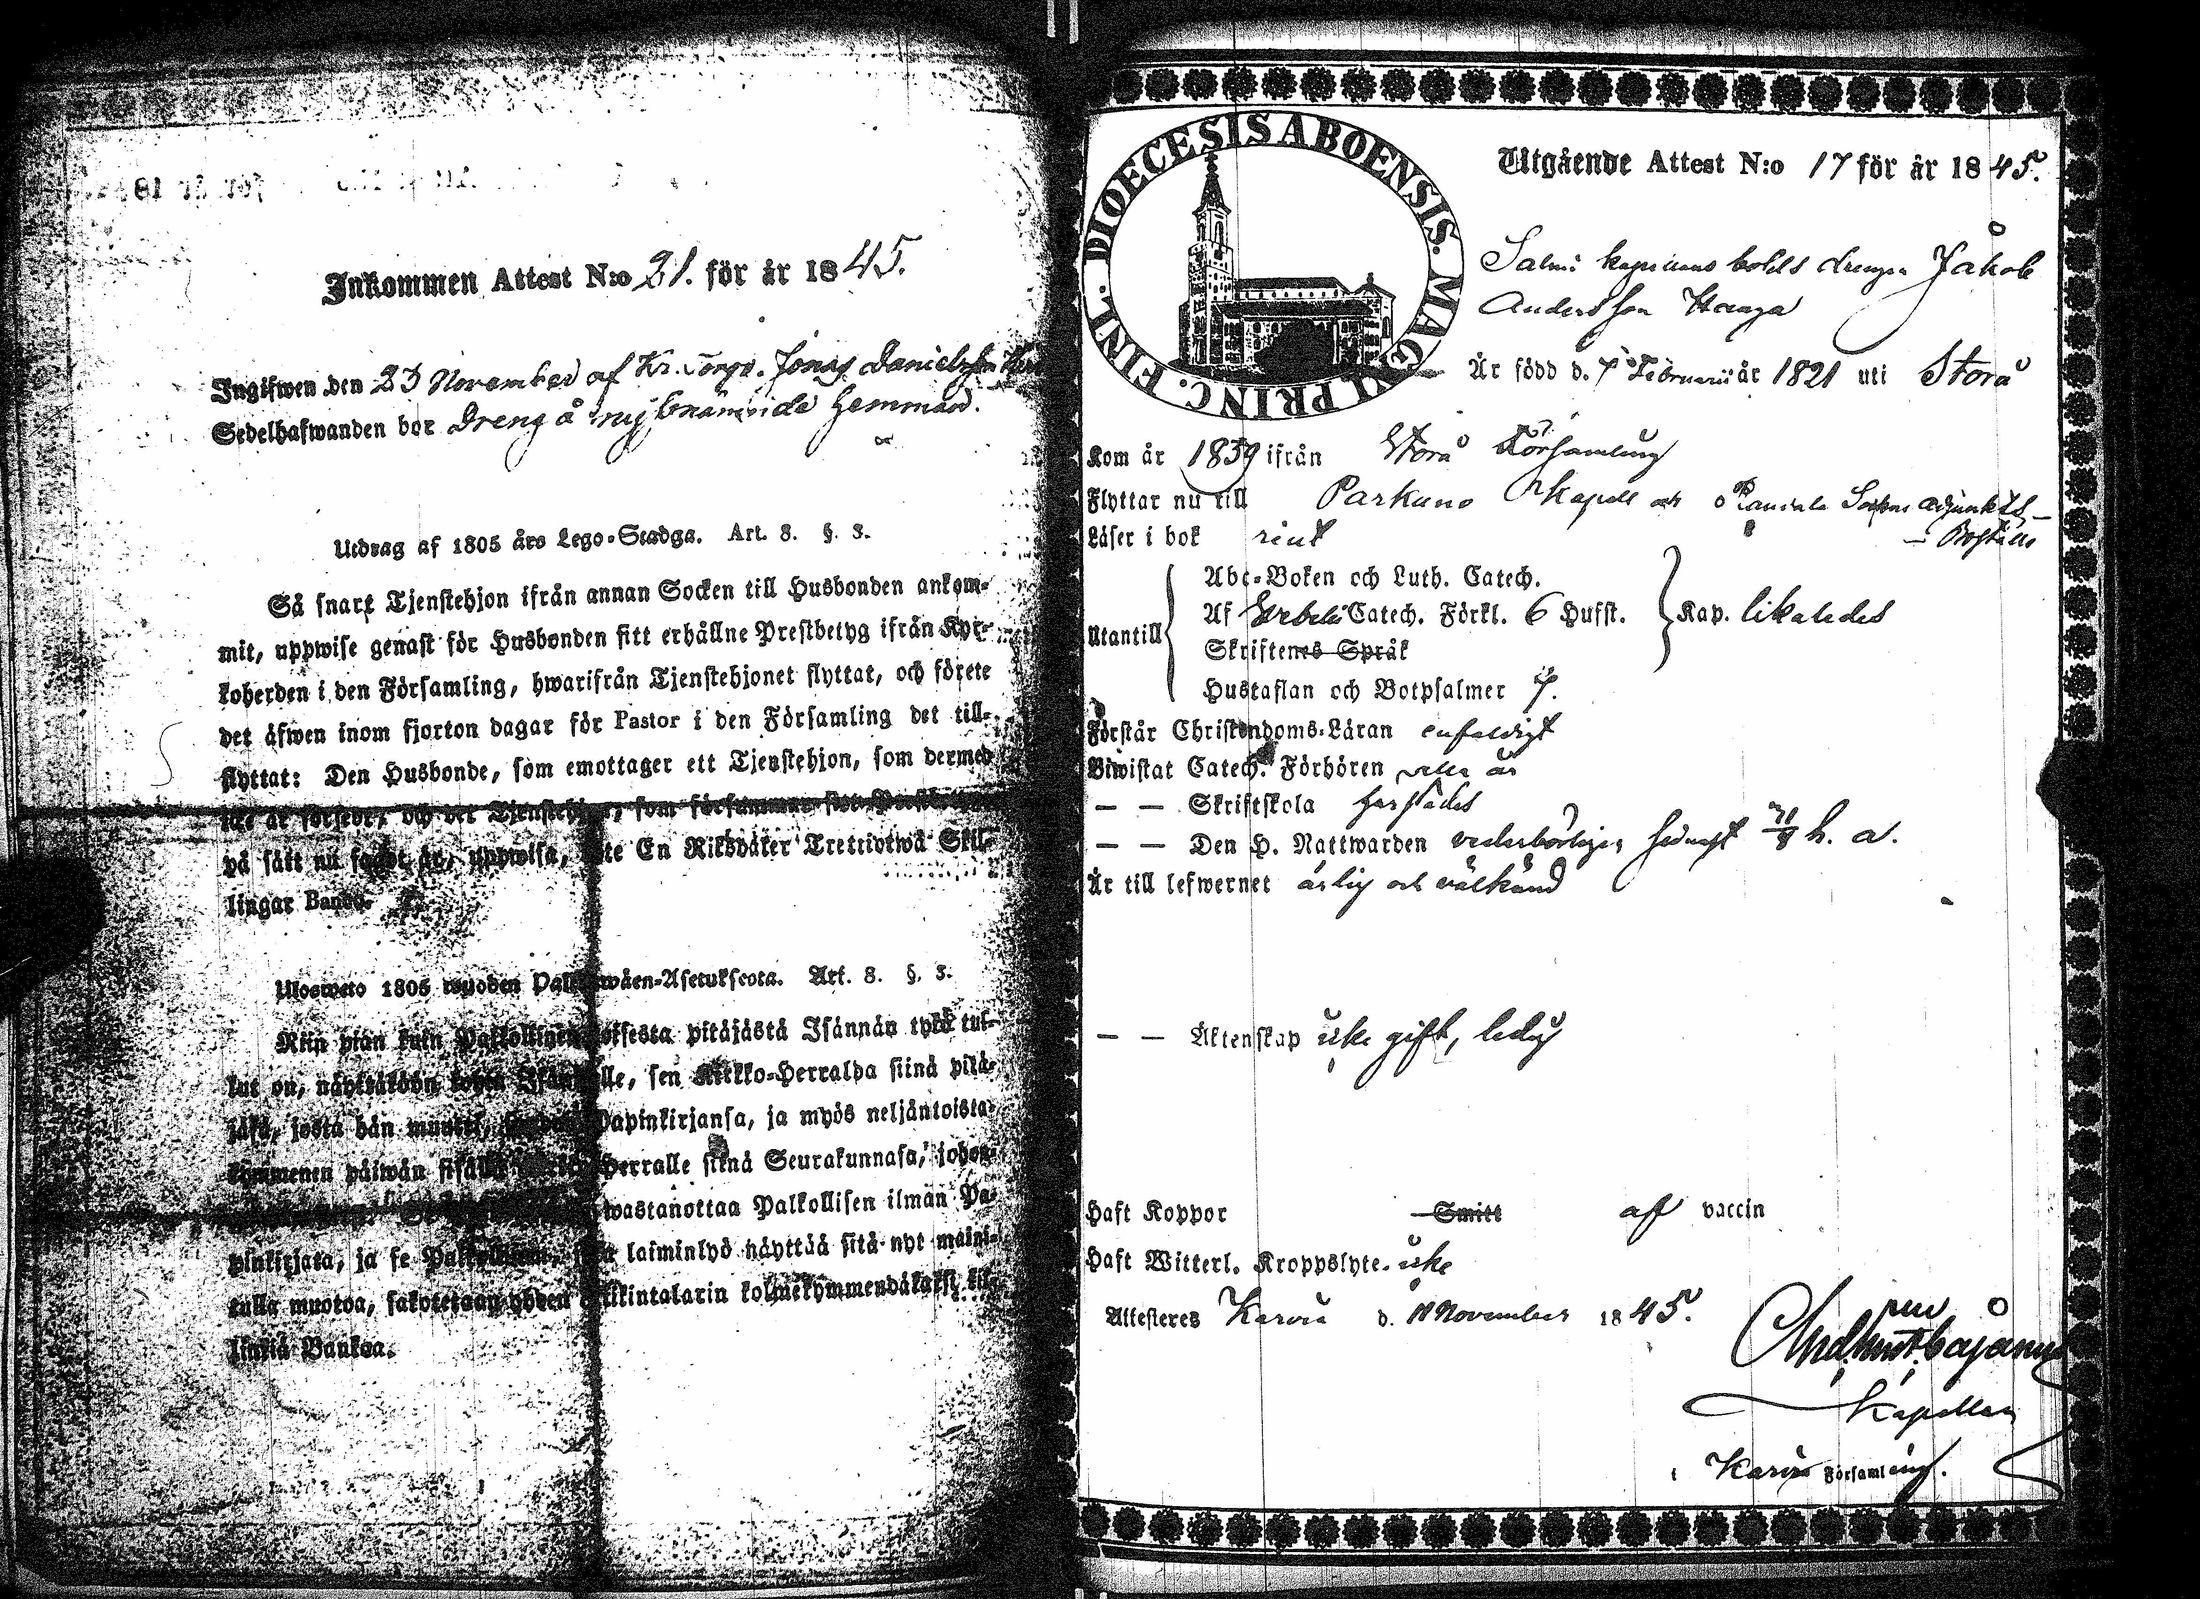 Inkommen Attest N:o 21. för år 1845.
Ingifwen den 23 November af Kr. Jonas Danielsson
Sedelhafwanden bor Dreng å Hemman.
Utdrag af 1805 års Lego-Stadga. Art. 8. §. 3.
Så snart Tjenstehjon ifrån annan Socken till Husbonden ankom-
mit, uppwise genast för Husbonden sitt erhållne Prestbetyg ifrån Kyr-
koherden i den Församling, hwarifrån Tjenstehjonet flyttat, och förete
det äfwen inom fjorton dagar för Pastor i den Församling det till-
flyttat: Den Husbonde, som emottager ett Tjenstehjon, som dermed
icke är försedt, och det Tjenstehjon, som försummar sitt
på sätt nu sagdt är, uppwisa, böte En Riksdaler Trettiotwå Skil-
lingar Banco.
Ulosweto 1805 wuoden Palkkawäen-Asetuksesta. Art. 8. §. 3.
Niin pian kuin Palkollinen toisesta pitäjästä Isännän tykö tul-
lut on, näyttäköön Isännälle, sen Kirkko-Herralda siinä pitä-
jäsä, josta hän muutti, Papinkirjansa, ja myös neljäntoista-
kymmenen päiwän sisällä Herralle siinä Seurakunnasa, johon-
wastanottaa Palkollisen ilman Pa-
pinkirjata, ja se Palkollinen, joka laiminlyö näyttää sitä nyt maini-
tulla muotoa, sakotetaan yhden Riikintalarin kolmekymmendäkaksi kil-
linkiä Bankoa.
DIOECESIS ABOENSIS. MAGNI PRINC. FINL.
Utgående Attest N:o 17 för år 1845.
Salmi kaptens bohls drengen Jakob
Andersson Hanga
Är född d. 7 Februarii år 1821 uti Storå
Kom år 1839 ifrån Storå Församling
Flyttar nu till Parkano Kapell och Adjunkts-
Boställe
Läser i bok rent
Utantill
Abc-Boken och Luth. Catech.
Af Svebelii Catech. Förkl. 6 Hufst.
Skriftenes Språk
Hustaflan och Botpsalmer 7.
Kap. likaledes
Förstår Christendoms-Läran enfaldigt
Biwistat Catech. Förhören alla år
— — Skriftskola härstädes
— — Den H. Nattwarden vederbörligen senast h. a.
Är till lefwernet ärlig och välkänd
— — Äktenskap icke gift, ledig
Haft Koppor Smitt af vaccin
Haft Witterl. Kroppslyte. icke
Attesteres Karvia d. 11 November 1845.
And. Gust. Cajanus
Kapellan
i Karvia Församling.